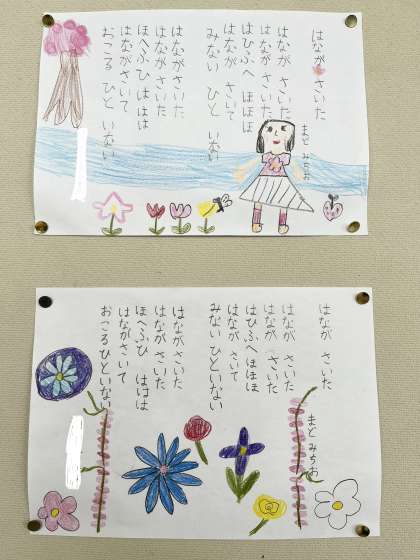 はなが さいた
まど みちお
はなが さいた
はなが さいた
はひふへ ほほほ
はなが さいて
みない ひと いない
はなが さいた
はなが さいた
ほへふひ ははは
はなが さいて
おこる ひと いない
はなが さいた
まど みちお
はなが さいた
はなが さいた
はひふへ ほほほ
はなが さいて
みない ひといない
はなが さいた
はなが さいた
ほへふひ ははは
はながさいて
おこるひといない